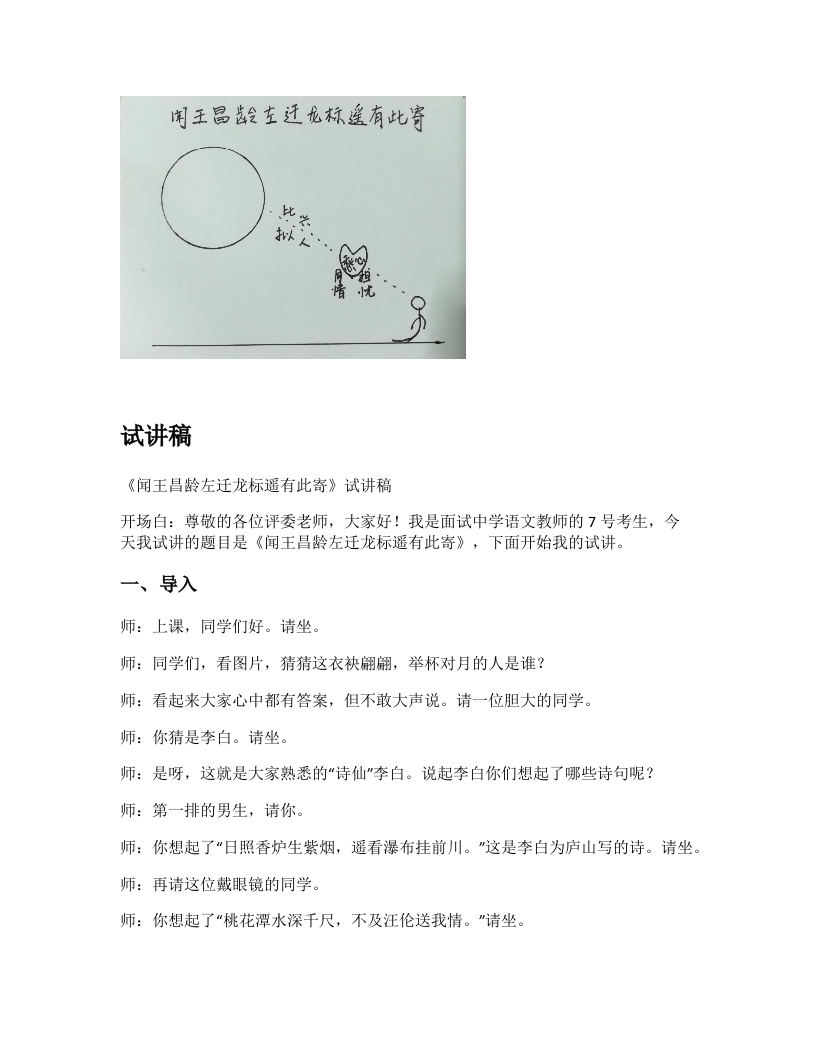 闻王昌龄左迁龙标遥有此寄
比兴
拟人
愁心
同情
担忧
试讲稿
《闻王昌龄左迁龙标遥有此寄》试讲稿
开场白：尊敬的各位评委老师，大家好！我是面试中学语文教师的 7 号考生，今
天我试讲的题目是《闻王昌龄左迁龙标遥有此寄》，下面开始我的试讲。
一、导入
师：上课，同学们好。请坐。
师：同学们，看图片，猜猜这衣袂翩翩，举杯对月的人是谁？
师：看起来大家心中都有答案，但不敢大声说。请一位胆大的同学。
师：你猜是李白。请坐。
师：是呀，这就是大家熟悉的“诗仙”李白。说起李白你们想起了哪些诗句呢？
师：第一排的男生，请你。
师：你想起了“日照香炉生紫烟，遥看瀑布挂前川。”这是李白为庐山写的诗。请坐。
师：再请这位戴眼镜的同学。
师：你想起了“桃花潭水深千尺，不及汪伦送我情。”请坐。